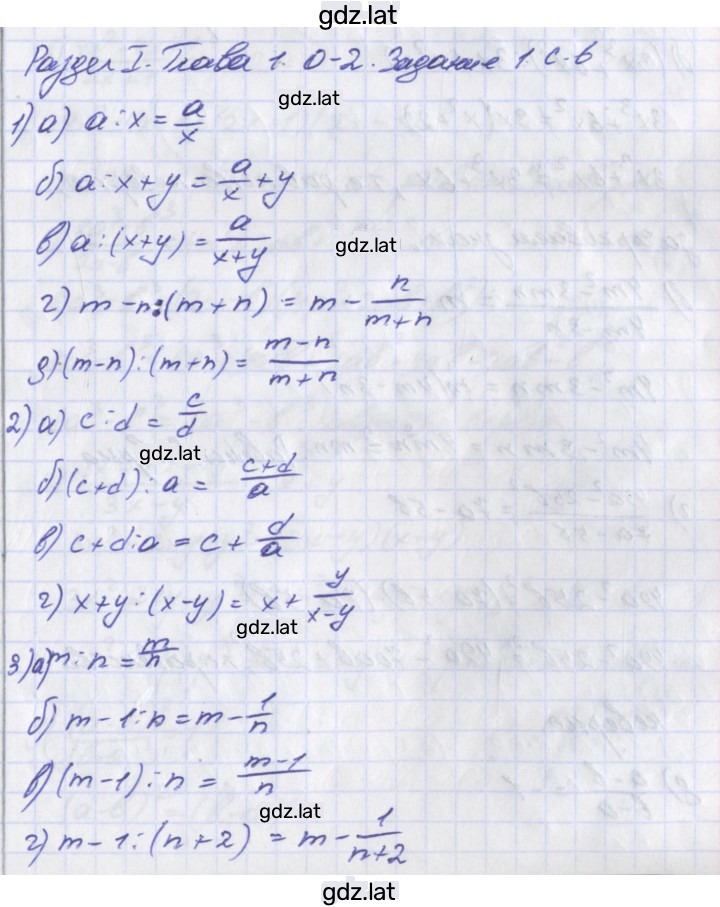 gdz.lat
Раздел I. Глава 1. О-2. Задание 1 с. 6
gdz.lat
1) а) a : x = a/x
б) a : x + y = a/x + y
в) a : (x+y) = a/(x+y)
gdz.lat
г) m - n : (m + n) = m - n/(m+n)
д) (m-n) : (m+n) = (m-n)/(m+n)
2) а) c : d = c/d
gdz.lat
б) (c+d) : a = (c+d)/a
в) c + d : a = c + d/a
г) x + y : (x-y) = x + y/(x-y)
gdz.lat
3) а) m : n = m/n
б) m - 1 : n = m - 1/n
в) (m-1) : n = (m-1)/n
gdz.lat
г) m - 1 : (n+2) = m - 1/(n+2)
gdz.lat